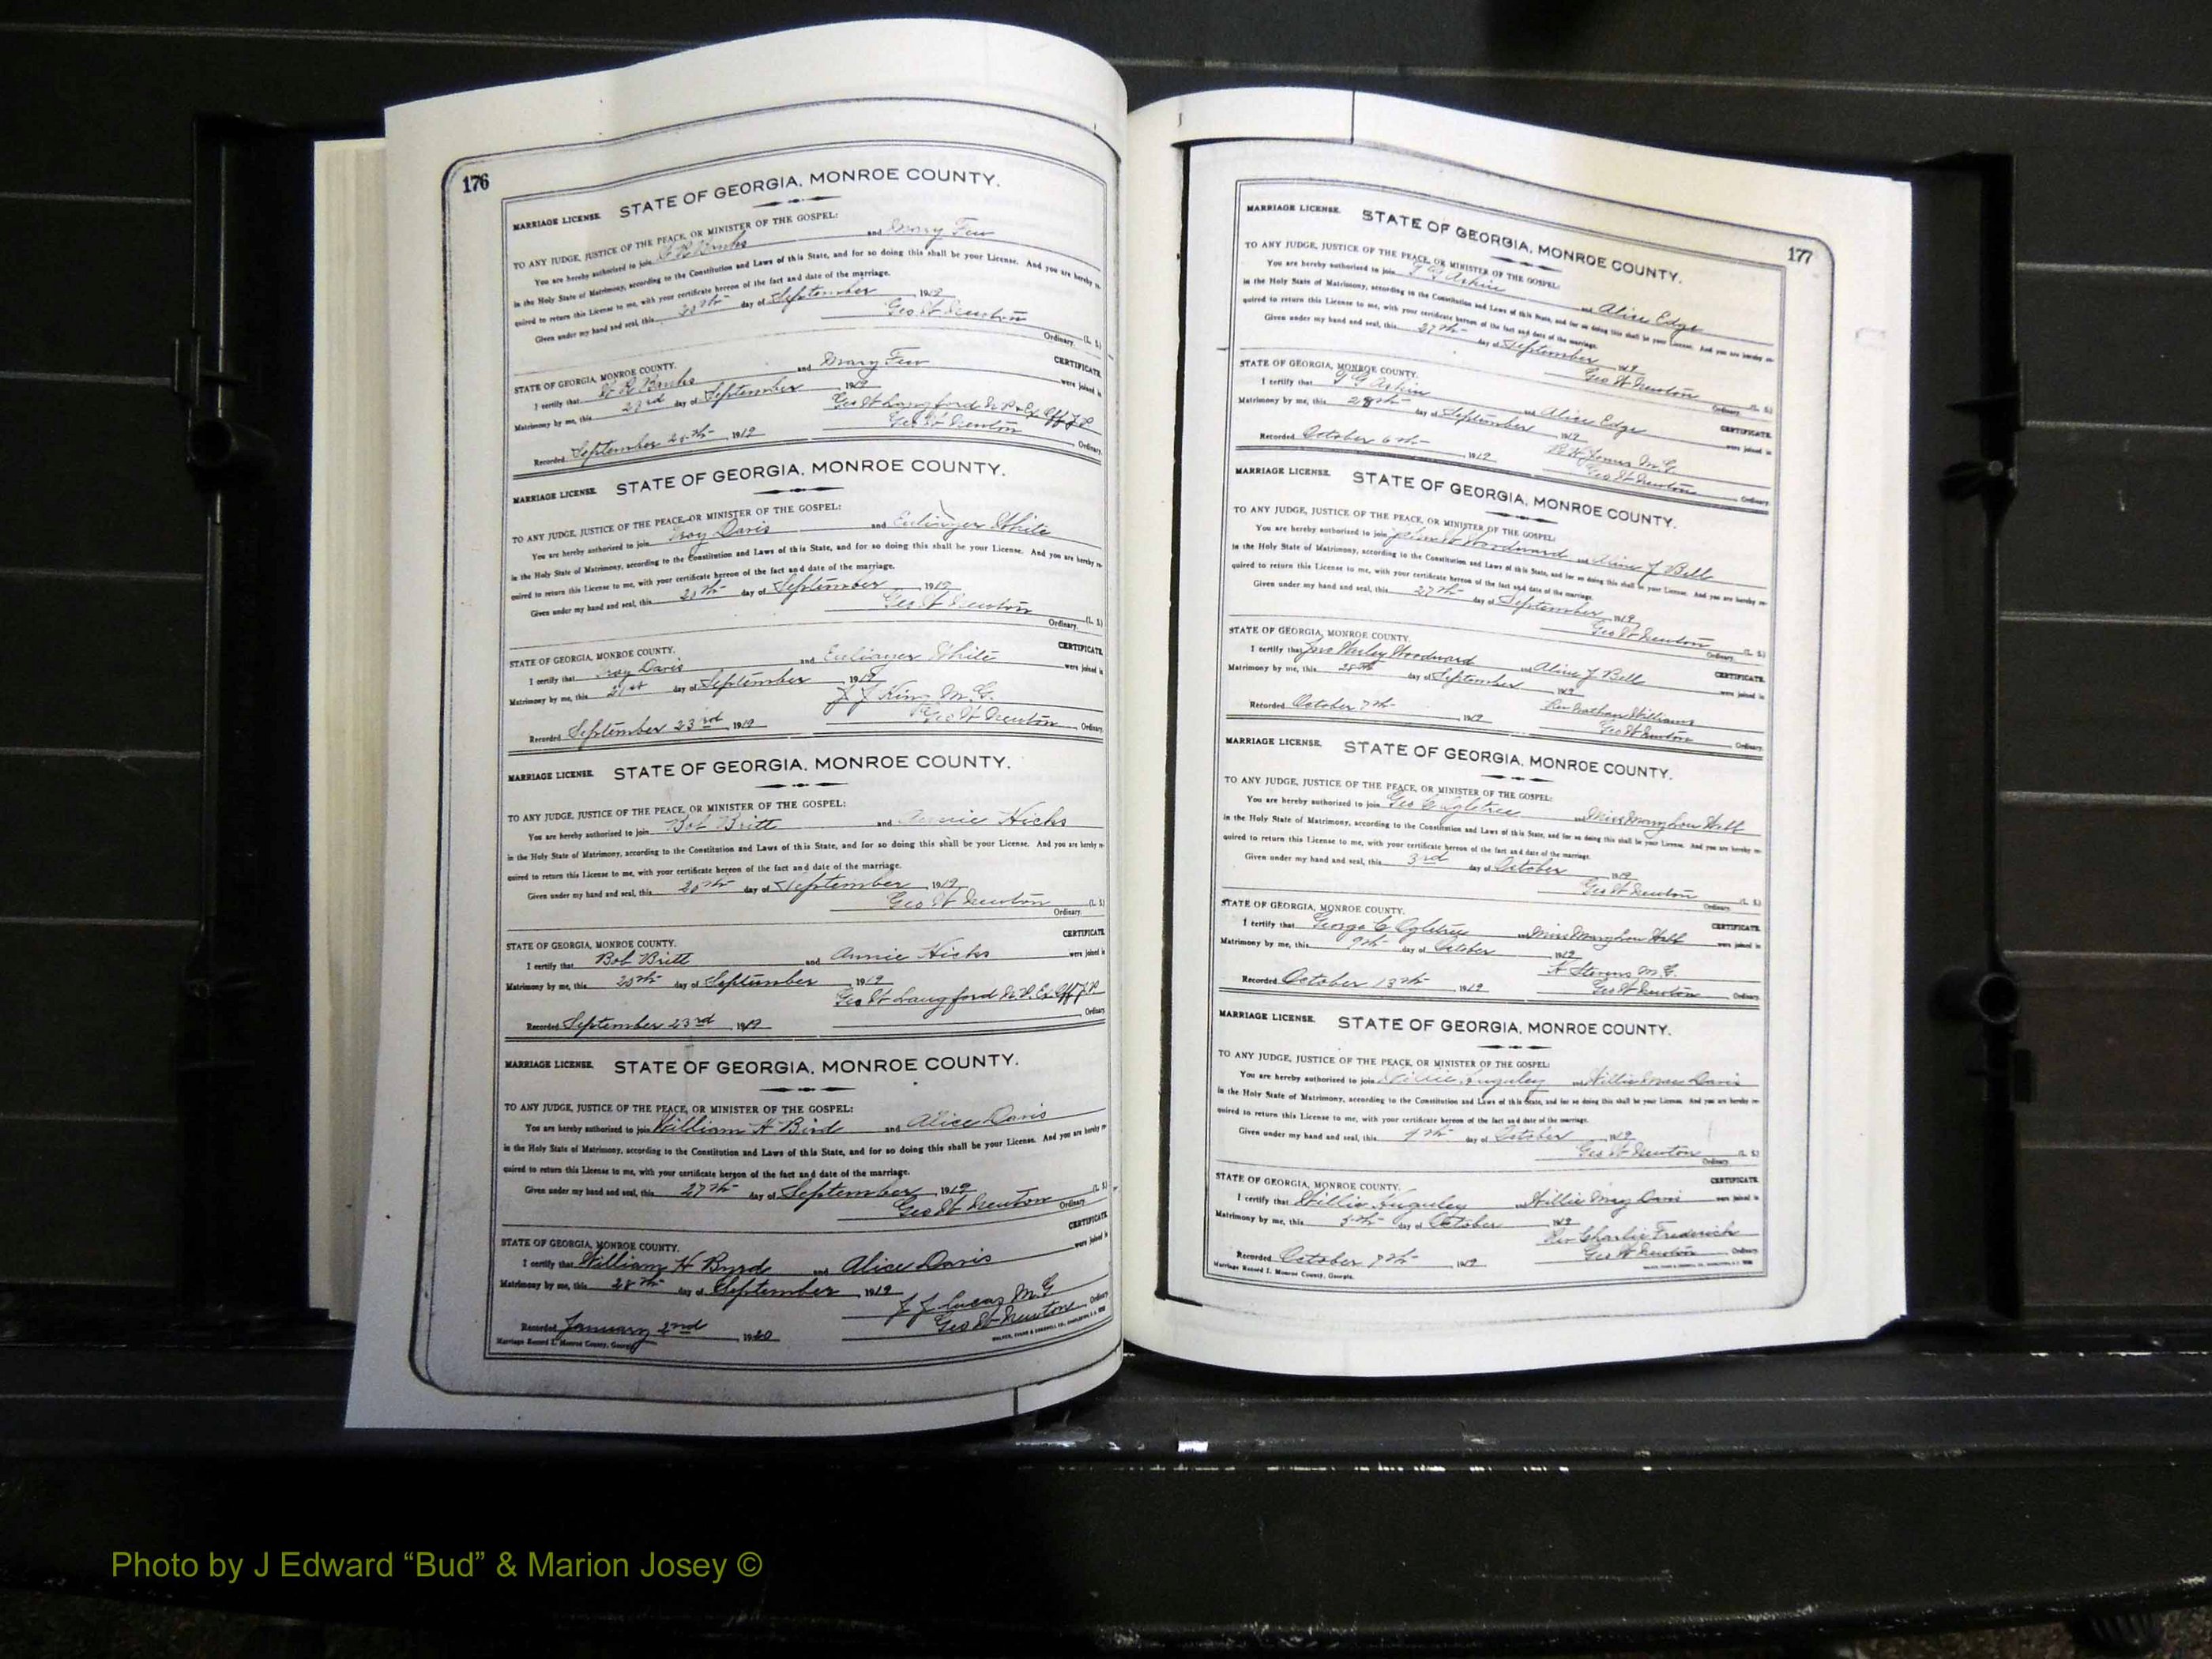 176
MARRIAGE LICENSE. STATE OF GEORGIA, MONROE COUNTY.
TO ANY JUDGE, JUSTICE OF THE PEACE, OR MINISTER OF THE GOSPEL:
You are hereby authorized to join Banks and Mary Few
in the Holy State of Matrimony, according to the Constitution and Laws of this State, and for so doing this shall be your License. And you are hereby re-
quired to return this License to me, with your certificate hereon of the fact and date of the marriage.
Given under my hand and seal, this 20th day of September, 1919
Geo W Newton (L. S.)
Ordinary.
STATE OF GEORGIA, MONROE COUNTY. CERTIFICATE.
I certify that Banks and Mary Few were joined in
Matrimony by me, this 23rd day of September, 1919
Geo W Langford N P & Ex Off J P
Recorded September 1919 Geo W Newton Ordinary.
MARRIAGE LICENSE. STATE OF GEORGIA, MONROE COUNTY.
TO ANY JUDGE, JUSTICE OF THE PEACE, OR MINISTER OF THE GOSPEL:
You are hereby authorized to join Troy Davis and White
in the Holy State of Matrimony, according to the Constitution and Laws of this State, and for so doing this shall be your License. And you are hereby re-
quired to return this License to me, with your certificate hereon of the fact and date of the marriage.
Given under my hand and seal, this 20th day of September, 1919
Geo W Newton (L. S.)
Ordinary.
STATE OF GEORGIA, MONROE COUNTY. CERTIFICATE.
I certify that Troy Davis and White were joined in
Matrimony by me, this 21st day of September, 1919
J J King M. G.
Recorded September 23rd, 1919 Geo W Newton Ordinary.
MARRIAGE LICENSE. STATE OF GEORGIA, MONROE COUNTY.
TO ANY JUDGE, JUSTICE OF THE PEACE, OR MINISTER OF THE GOSPEL:
You are hereby authorized to join Bob Britt and Annie Hicks
in the Holy State of Matrimony, according to the Constitution and Laws of this State, and for so doing this shall be your License. And you are hereby re-
quired to return this License to me, with your certificate hereon of the fact and date of the marriage.
Given under my hand and seal, this 20th day of September, 1919
Geo W Newton (L. S.)
Ordinary.
STATE OF GEORGIA, MONROE COUNTY. CERTIFICATE.
I certify that Bob Britt and Annie Hicks were joined in
Matrimony by me, this 20th day of September, 1919
Geo W Langford N. P. Ex. Off J. P.
Recorded September 23rd, 1919 Ordinary.
MARRIAGE LICENSE. STATE OF GEORGIA, MONROE COUNTY.
TO ANY JUDGE, JUSTICE OF THE PEACE, OR MINISTER OF THE GOSPEL:
You are hereby authorized to join William H Bird and Alice Davis
in the Holy State of Matrimony, according to the Constitution and Laws of this State, and for so doing this shall be your License. And you are hereby re-
quired to return this License to me, with your certificate hereon of the fact and date of the marriage.
Given under my hand and seal, this 27th day of September, 1919 (L. S.)
Geo W Newton Ordinary.
STATE OF GEORGIA, MONROE COUNTY. CERTIFICATE.
I certify that William H Byrd and Alice Davis were joined in
Matrimony by me, this 28th day of September, 1919
J J Lucas M. G
Recorded January 2nd, 1920 Geo W Newton Ordinary.
Marriage Record I, Monroe County, Georgia
177
MARRIAGE LICENSE. STATE OF GEORGIA, MONROE COUNTY.
TO ANY JUDGE, JUSTICE OF THE PEACE, OR MINISTER OF THE GOSPEL:
You are hereby authorized to join T G Askin and Alice Edge
in the Holy State of Matrimony, according to the Constitution and Laws of this State, and for so doing this shall be your License. And you are hereby re-
quired to return this License to me, with your certificate hereon of the fact and date of the marriage.
Given under my hand and seal, this 27th day of September, 1919
Geo W Newton (L. S.)
Ordinary.
STATE OF GEORGIA, MONROE COUNTY. CERTIFICATE.
I certify that T G Askin and Alice Edge were joined in
Matrimony by me, this 28th day of September, 1919
Jones M. G.
Recorded October 6th, 1919 Geo W Newton Ordinary.
MARRIAGE LICENSE. STATE OF GEORGIA, MONROE COUNTY.
TO ANY JUDGE, JUSTICE OF THE PEACE, OR MINISTER OF THE GOSPEL:
You are hereby authorized to join John W Woodward and Aline J Bell
in the Holy State of Matrimony, according to the Constitution and Laws of this State, and for so doing this shall be your License. And you are hereby re-
quired to return this License to me, with your certificate hereon of the fact and date of the marriage.
Given under my hand and seal, this 27th day of September, 1919
Geo W Newton (L. S.)
Ordinary.
STATE OF GEORGIA, MONROE COUNTY. CERTIFICATE.
I certify that Jno Worley Woodward and Aline J Bell were joined in
Matrimony by me, this 28th day of September, 1919
Rev Nathan Williams
Recorded October 7th, 1919 Geo W Newton Ordinary.
MARRIAGE LICENSE. STATE OF GEORGIA, MONROE COUNTY.
TO ANY JUDGE, JUSTICE OF THE PEACE, OR MINISTER OF THE GOSPEL:
You are hereby authorized to join Geo C Ogletree and Miss Mary Lou
in the Holy State of Matrimony, according to the Constitution and Laws of this State, and for so doing this shall be your License. And you are hereby re-
quired to return this License to me, with your certificate hereon of the fact and date of the marriage.
Given under my hand and seal, this 3rd day of October, 1919
Geo W Newton (L. S.)
Ordinary.
STATE OF GEORGIA, MONROE COUNTY. CERTIFICATE.
I certify that George C Ogletree and Miss Mary Lou were joined in
Matrimony by me, this 9th day of October, 1919
H. Stevens M. G.
Recorded October 13th, 1919 Geo W Newton Ordinary.
MARRIAGE LICENSE. STATE OF GEORGIA, MONROE COUNTY.
TO ANY JUDGE, JUSTICE OF THE PEACE, OR MINISTER OF THE GOSPEL:
You are hereby authorized to join Willie Huguley and Willie Mae Davis
in the Holy State of Matrimony, according to the Constitution and Laws of this State, and for so doing this shall be your License. And you are hereby re-
quired to return this License to me, with your certificate hereon of the fact and date of the marriage.
Given under my hand and seal, this 4th day of October, 1919
Geo W Newton (L. S.)
Ordinary.
STATE OF GEORGIA, MONROE COUNTY. CERTIFICATE.
I certify that Willie Huguley and Willie May Davis were joined in
Matrimony by me, this 5th day of October, 1919
Rev Charlie Frederick
Recorded October 7th, 1919 Geo W Newton Ordinary.
Marriage Record I. Monroe County, Georgia.
Photo by J Edward “Bud” & Marion Josey ©